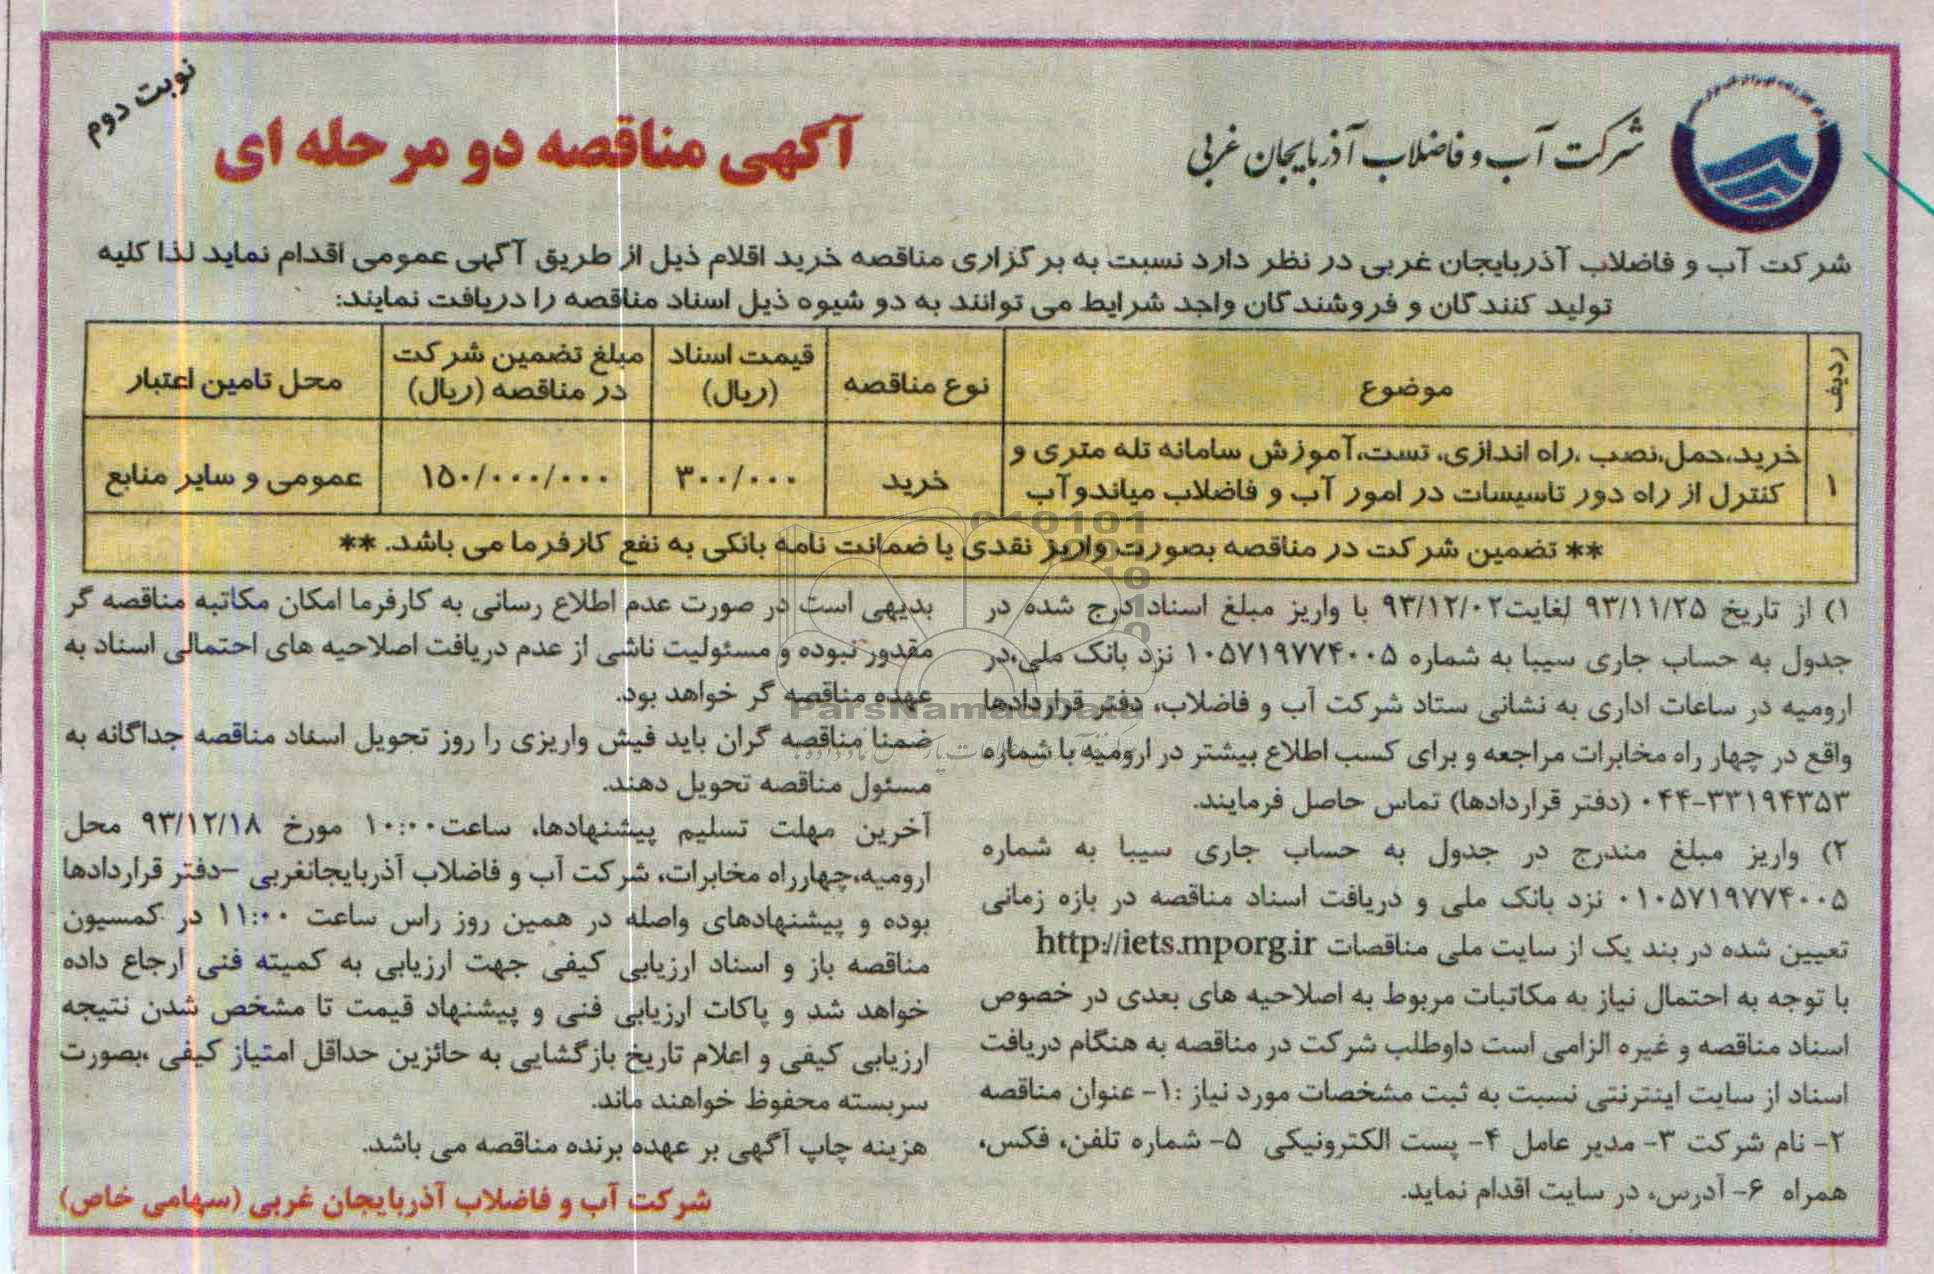 نوبت دوم
شرکت آب و فاضلاب آذربایجان غربی
آگهی مناقصه دو مرحله ای
شرکت آب و فاضلاب آذربایجان غربی در نظر دارد نسبت به برگزاری مناقصه خرید اقلام ذیل از طریق آگهی عمومی اقدام نماید لذا کلیه
تولید کنندگان و فروشندگان واجد شرایط می توانند به دو شیوه ذیل اسناد مناقصه را دریافت نمایند:
ردیف | موضوع | نوع مناقصه | قیمت اسناد (ریال) | مبلغ تضمین شرکت در مناقصه (ریال) | محل تامین اعتبار
۱ | خرید،حمل،نصب ،راه اندازی، تست،آموزش سامانه تله متری و کنترل از راه دور تاسیسات در امور آب و فاضلاب میاندوآب | خرید | ۳۰۰/۰۰۰ | ۱۵۰/۰۰۰/۰۰۰ | عمومی و سایر منابع
** تضمین شرکت در مناقصه بصورت واریز نقدی یا ضمانت نامه بانکی به نفع کارفرما می باشد. **
۱) از تاریخ ۹۳/۱۱/۲۵ لغایت۹۳/۱۲/۰۲ با واریز مبلغ اسناد درج شده در
جدول به حساب جاری سیبا به شماره ۱۰۵۷۱۹۷۷۴۰۰۵ نزد بانک ملی،در
ارومیه در ساعات اداری به نشانی ستاد شرکت آب و فاضلاب، دفتر قراردادها
واقع در چهار راه مخابرات مراجعه و برای کسب اطلاع بیشتر در ارومیه با شماره
۰۴۴-۳۳۱۹۴۳۵۳ (دفتر قراردادها) تماس حاصل فرمایند.
۲) واریز مبلغ مندرج در جدول به حساب جاری سیبا به شماره
۰۱۰۵۷۱۹۷۷۴۰۰۵ نزد بانک ملی و دریافت اسناد مناقصه در بازه زمانی
تعیین شده در بند یک از سایت ملی مناقصات http://iets.mporg.ir
با توجه به احتمال نیاز به مکاتبات مربوط به اصلاحیه های بعدی در خصوص
اسناد مناقصه و غیره الزامی است داوطلب شرکت در مناقصه به هنگام دریافت
اسناد از سایت اینترنتی نسبت به ثبت مشخصات مورد نیاز :۱- عنوان مناقصه
۲- نام شرکت ۳- مدیر عامل ۴- پست الکترونیکی ۵- شماره تلفن، فکس،
همراه ۶- آدرس، در سایت اقدام نماید.
بدیهی است در صورت عدم اطلاع رسانی به کارفرما امکان مکاتبه مناقصه گر
مقدور نبوده و مسئولیت ناشی از عدم دریافت اصلاحیه های احتمالی اسناد به
عهده مناقصه گر خواهد بود.
ضمنا مناقصه گران باید فیش واریزی را روز تحویل اسناد مناقصه جداگانه به
مسئول مناقصه تحویل دهند.
آخرین مهلت تسلیم پیشنهادها، ساعت۱۰:۰۰ مورخ ۹۳/۱۲/۱۸ محل
ارومیه،چهارراه مخابرات، شرکت آب و فاضلاب آذربایجانغربی –دفتر قراردادها
بوده و پیشنهادهای واصله در همین روز راس ساعت ۱۱:۰۰ در کمسیون
مناقصه باز و اسناد ارزیابی کیفی جهت ارزیابی به کمیته فنی ارجاع داده
خواهد شد و پاکات ارزیابی فنی و پیشنهاد قیمت تا مشخص شدن نتیجه
ارزیابی کیفی و اعلام تاریخ بازگشایی به حائزین حداقل امتیاز کیفی ،بصورت
سربسته محفوظ خواهند ماند.
هزینه چاپ آگهی بر عهده برنده مناقصه می باشد.
شرکت آب و فاضلاب آذربایجان غربی (سهامی خاص)
ParsNamadData